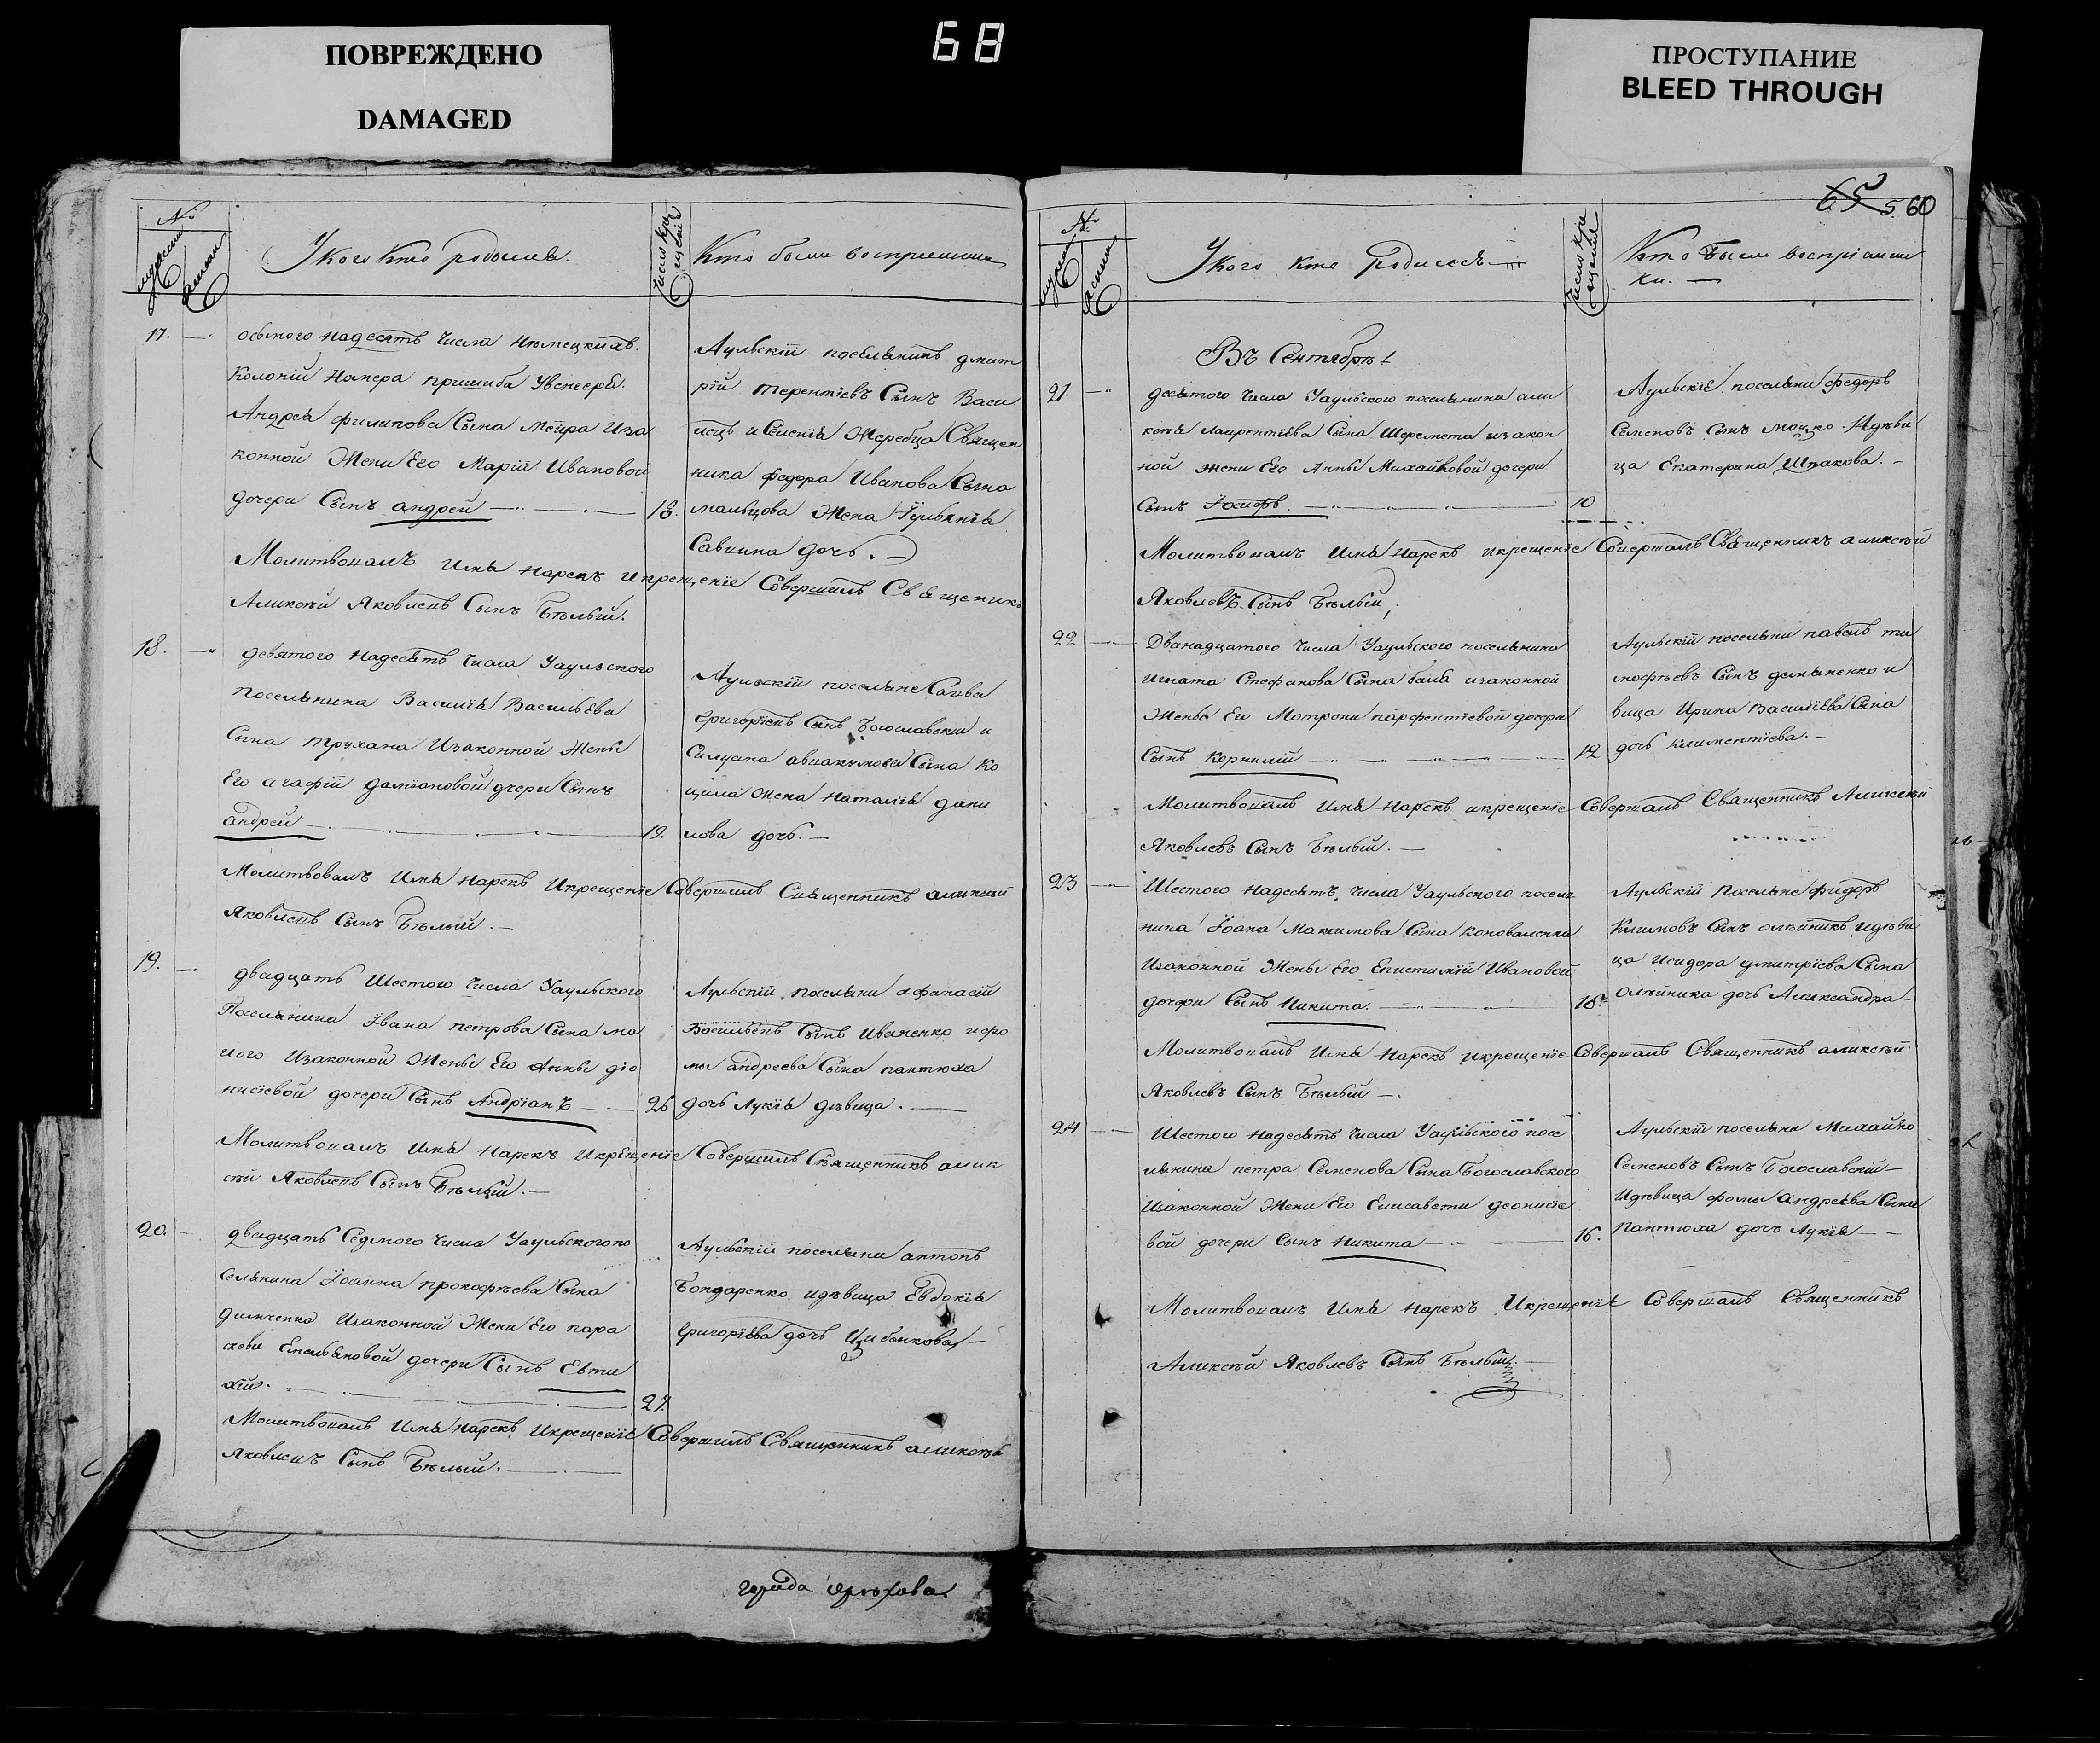 ПОВРЕЖДЕНО
DAMAGED
68
ПРОСТУПАНИЕ
BLEED THROUGH
65 5 60
№
мужеска
женска
У кого кто родился.
число кре
щения
Кто были восприемники
17.
осьмого надесять числа Немецких
Колоний Номера пришиба
Андрея филипова Сына Мейра Иза
конной Жены Его Марїи Ивановой
дочери Сынъ андрей
18.
Аульскїй поселянинъ дмит
рїй терентїевъ Сынъ Васи
лецъ и Жеребца Священ
ника федора Иванова Сына
мальцова Жена Їульянїя
Савина дочь.
Молитвовалъ Имя нарекъ и крещенїе Совершилъ Священикъ
Аликсѣй Яковлевъ Сынъ Бѣлый.
18.
девятого надесять Числа Уаульского
поселянина Василїя Васильева
Сына трухана Изаконной Жены
Его агафїи дамїановой дчери Сынъ
андрей
19.
Аульскїй поселяне Савва
григорїевъ Сынъ Богославскїй и
Силуана авакумова Сына Ко
цила Жена Наталїя дани
лова дочь.
Молитвовалъ Имя нарекъ Икрещенїе Совершилъ Священникъ аликсѣй
Яковлевъ Сынъ Бѣлый.
19.
двадцать Шестого Числа Уаульского
Поселянина Ївана петрова Сына ма
лого Изаконной Жены Его Анны дїо
нисїевой дочери Сынъ Андрїанъ
26
Аульскїй поселяни афанасїй
Васильевъ Сынъ Иваненко и фо
мы андреева Сына пантюха
дочь Лукїя дѣвица.
Молитвовалъ Имя нарекъ Икрещенїе Совершилъ Священникъ алик
сѣй Яковлевъ Сынъ Бѣлый.
20.
двадцать Седмого Числа Уаульского по
селянина Їоанна прокофѣева Сына
Изаконной Жены Его пара
скеви Емельяновой дочери Сынъ Евти
хїй.
27.
Аульскїй поселяни антонъ
Бондаренко идѣвица Евдокїя
григорїева дочь Цибенкова
Молитвовалъ Имя нарекъ Икрещенїе Совершилъ Священникъ аликсѣй
Яковлевъ Сынъ Бѣлый.
города орѣхова
№
мужеска
женска
У кого кто родился
число кре
щения
Кто были воспрїемни
ки.
Въ Сентябрѣ
21.
десятого числа Уаульского поселянина али
ксѣя лаврентїева Сына Шеремета изакон
ной жены Его Анны Михайловой дочери
Сынъ Їосифъ.
10
Аульскїе поселяни федоръ
Семеновъ Сынъ мошко Идѣви
ца Екатерина Шпакова.
Молитвовалъ Имя нарекъ икрещенїе Совершалъ Священникъ аликсѣй
Яковлевъ Сынъ Бѣлый,
22
Дванадцатого Числа Уаульского поселянина
Игната Стефанова Сына баба изаконной
Жены Его Мотрони парфентїевой дочери
Сынъ Корнилїй
12
Аульскїй поселяни павелъ ти
мофѣевъ Сынъ демьяненко и
вица Ирина Василїева Сына
дочь Климентїева.
Молитвовалъ Имя нарекъ икрещенїе Совершалъ Священникъ Аликсѣй
Яковлевъ Сынъ Бѣлый.
23
Шестого надесять, числа Уаульского посел
нина Їоана Максимова Сына Коноваленка
Изаконной Жены Его Епистимїи Ивановой
дочери Сынъ Никита.
16.
Аульскїй Поселяне фидоръ
Климовъ Сынъ олѣйникъ идѣви
ца Исидора дмитрїева Сына
олѣйника дочь Александра
Молитвовалъ Имя нарекъ икрещенїе Совершалъ Священникъ аликсѣй
Яковлевъ Сынъ Бѣлый
24
Шестого надесять числа Уаульского посе
лянина петра Семенова Сына Богославского
Изаконной Жены Его Елисавети деонисїе
вой дочери Сынъ Никита
16.
Аульскїй поселяни Михайло
Семеновъ Сынъ Богославскїй
Идѣвица фомы андреева Сына
Пантюха дочь Лукїя
Молитвовалъ Имя нарекъ Икрещенїе Совершалъ Священникъ
Аликсѣй Яковлевъ Сынъ Бѣлый.